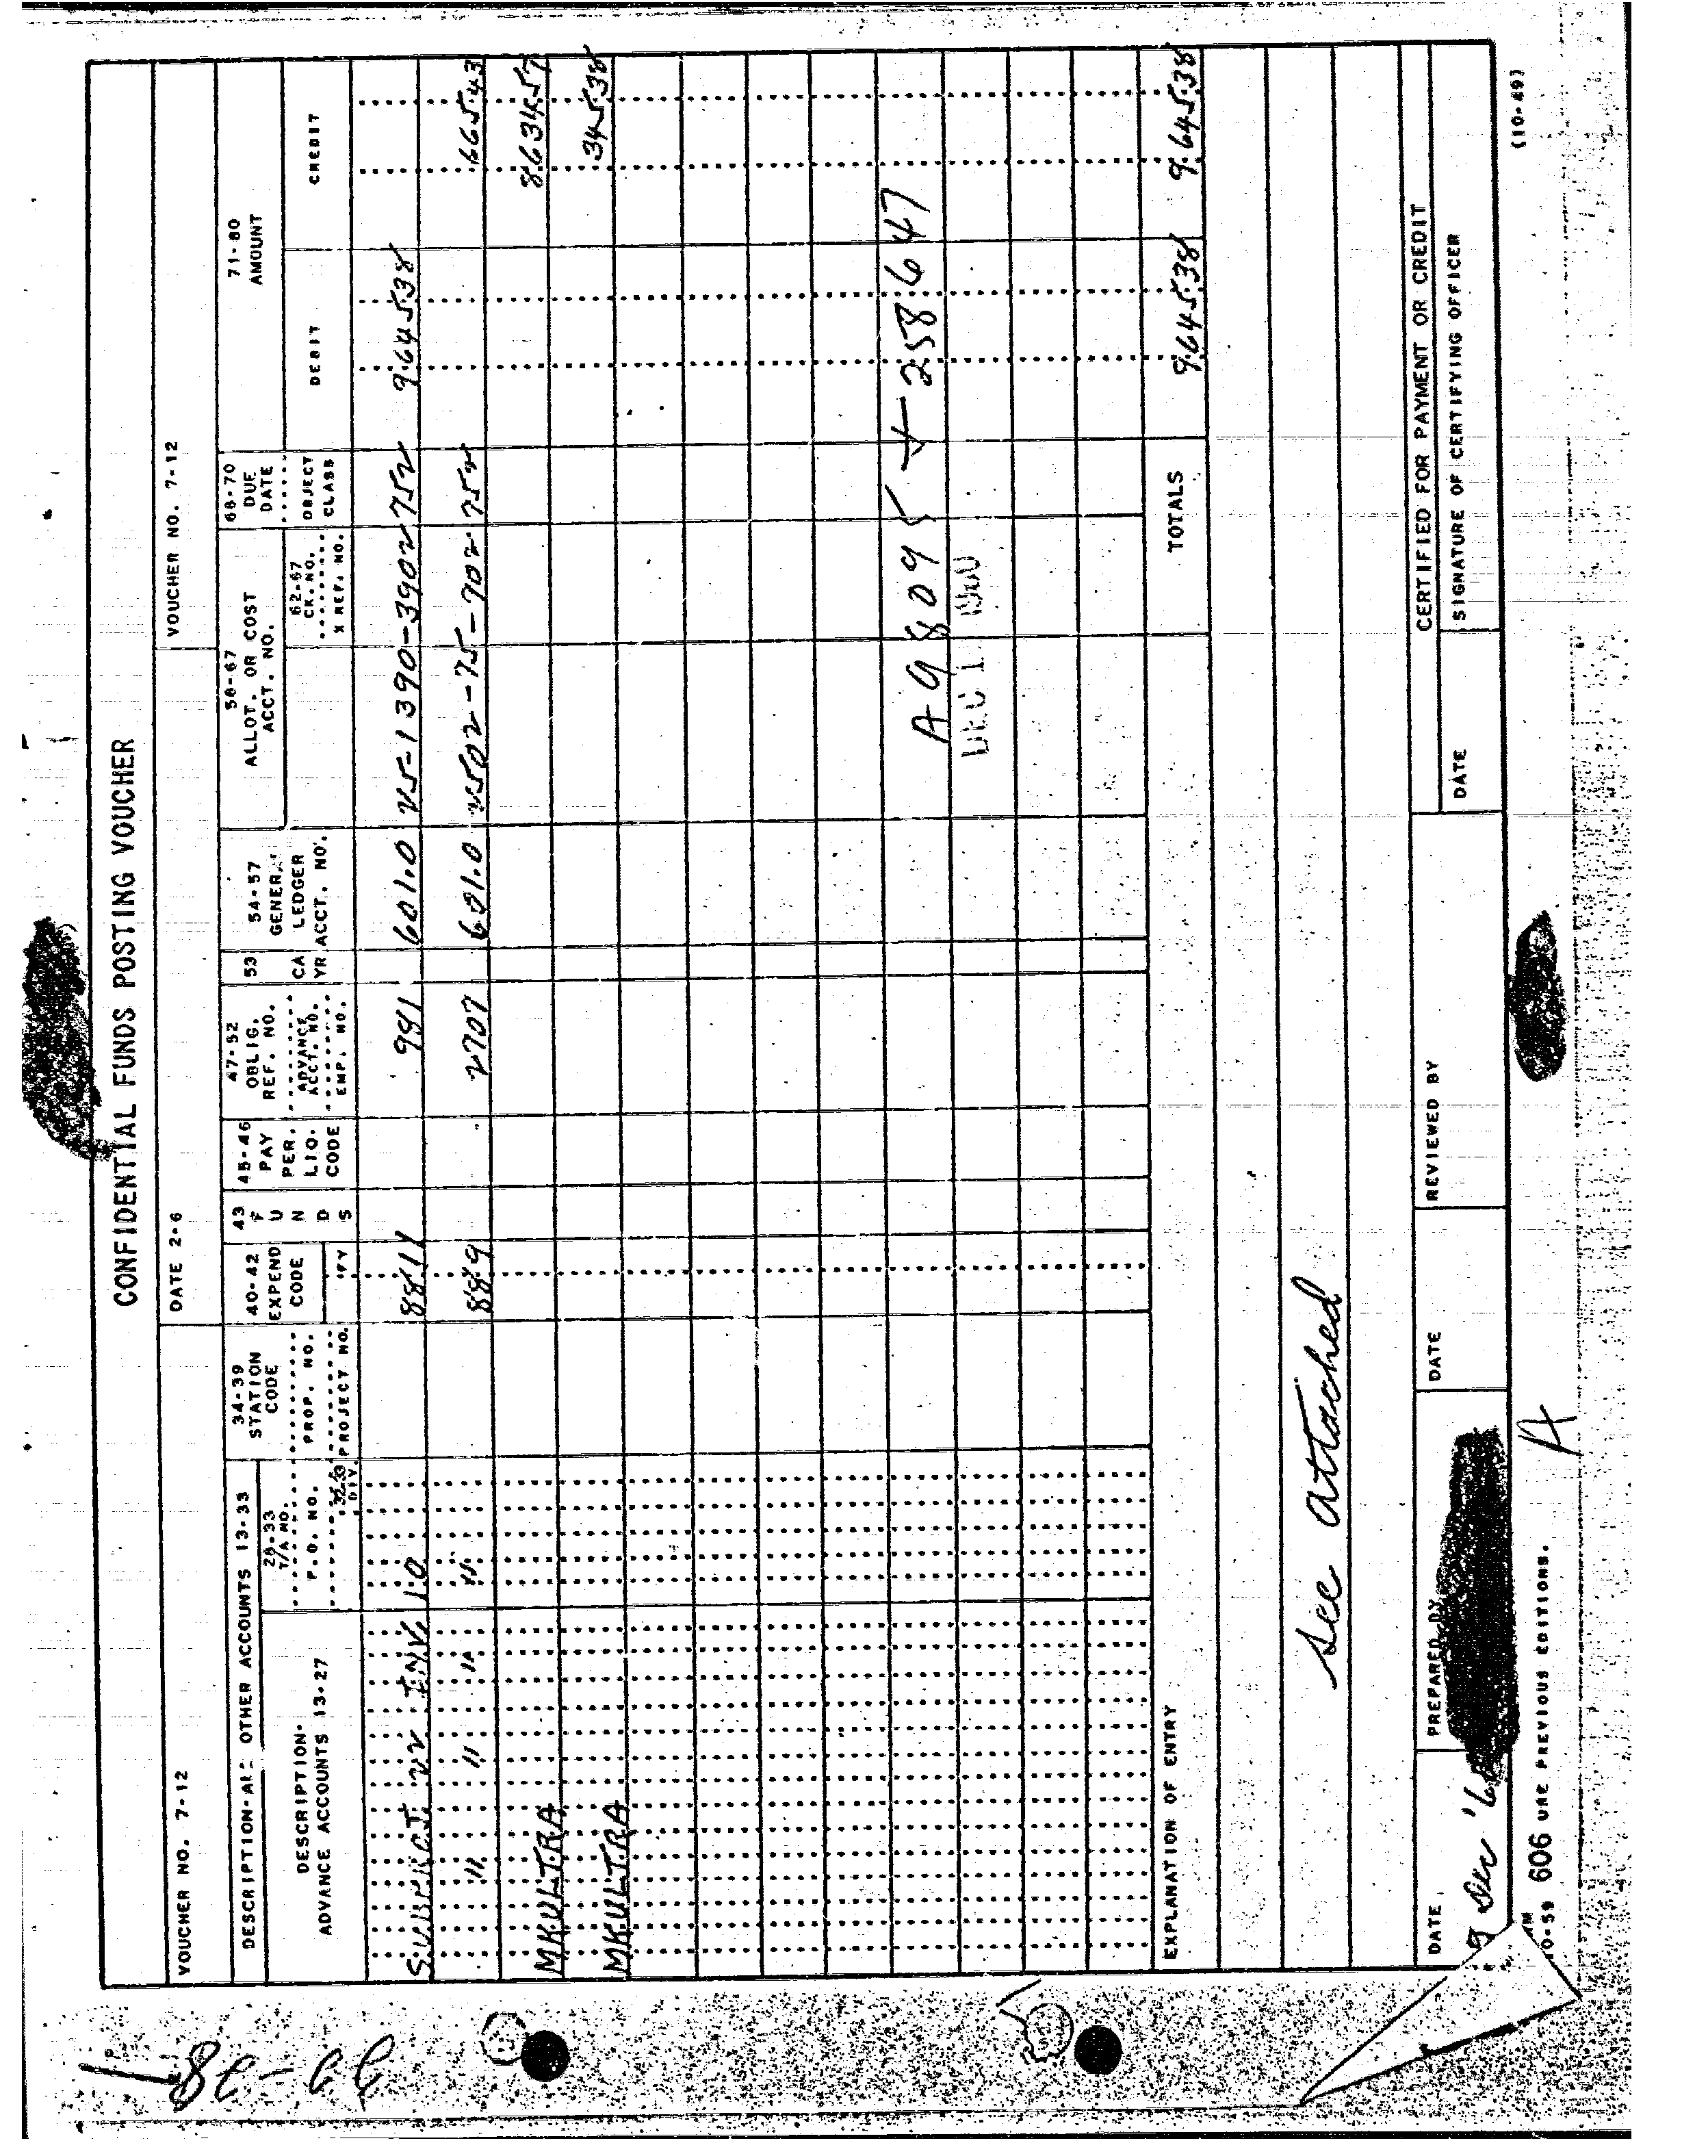 CONFIDENTIAL FUNDS POSTING VOUCHER
VOUCHER NO. 7-12
DATE 2-6
VOUCHER NO. 7-12
DESCRIPTION-ALL OTHER ACCOUNTS 13-33
DESCRIPTION-
ADVANCE ACCOUNTS 13-27
28-33
T/A NO.
P.O. NO.
DIV
34-39
STATION
CODE
PROP. NO.
PROJECT NO.
40-42
EXPEND
CODE
43
F
U
N
D
S
45-46
PAY
PER.
LIQ.
CODE
47-52
OBLIG.
REF. NO.
ADVANCE
ACCT. NO.
EMP. NO.
53
CA
YR
54-57
GENERAL
LEDGER
ACCT. NO.
58-67
ALLOT. OR COST
ACCT. NO.
62-67
CK. NO.
X REF. NO.
68-70
DUE
DATE
OBJECT
CLASS
71-80
AMOUNT
DEBIT
CREDIT
SUBPROJ. 22 INV 10 8811 991 601.0 25-1390-3902 752 9645.38
" " " " 889 2707 601.0 2502-75-702 752 665.43
MKULTRA 8634.57
MKULTRA 345.38
A98095 258647
DEC 1 1960
TOTALS 9645.38 9645.38
EXPLANATION OF ENTRY
See attached
DATE
PREPARED BY
DATE
REVIEWED BY
CERTIFIED FOR PAYMENT OR CREDIT
DATE
SIGNATURE OF CERTIFYING OFFICER
9 Dec '6
10-59 606 USE PREVIOUS EDITIONS.
A
(10-49)